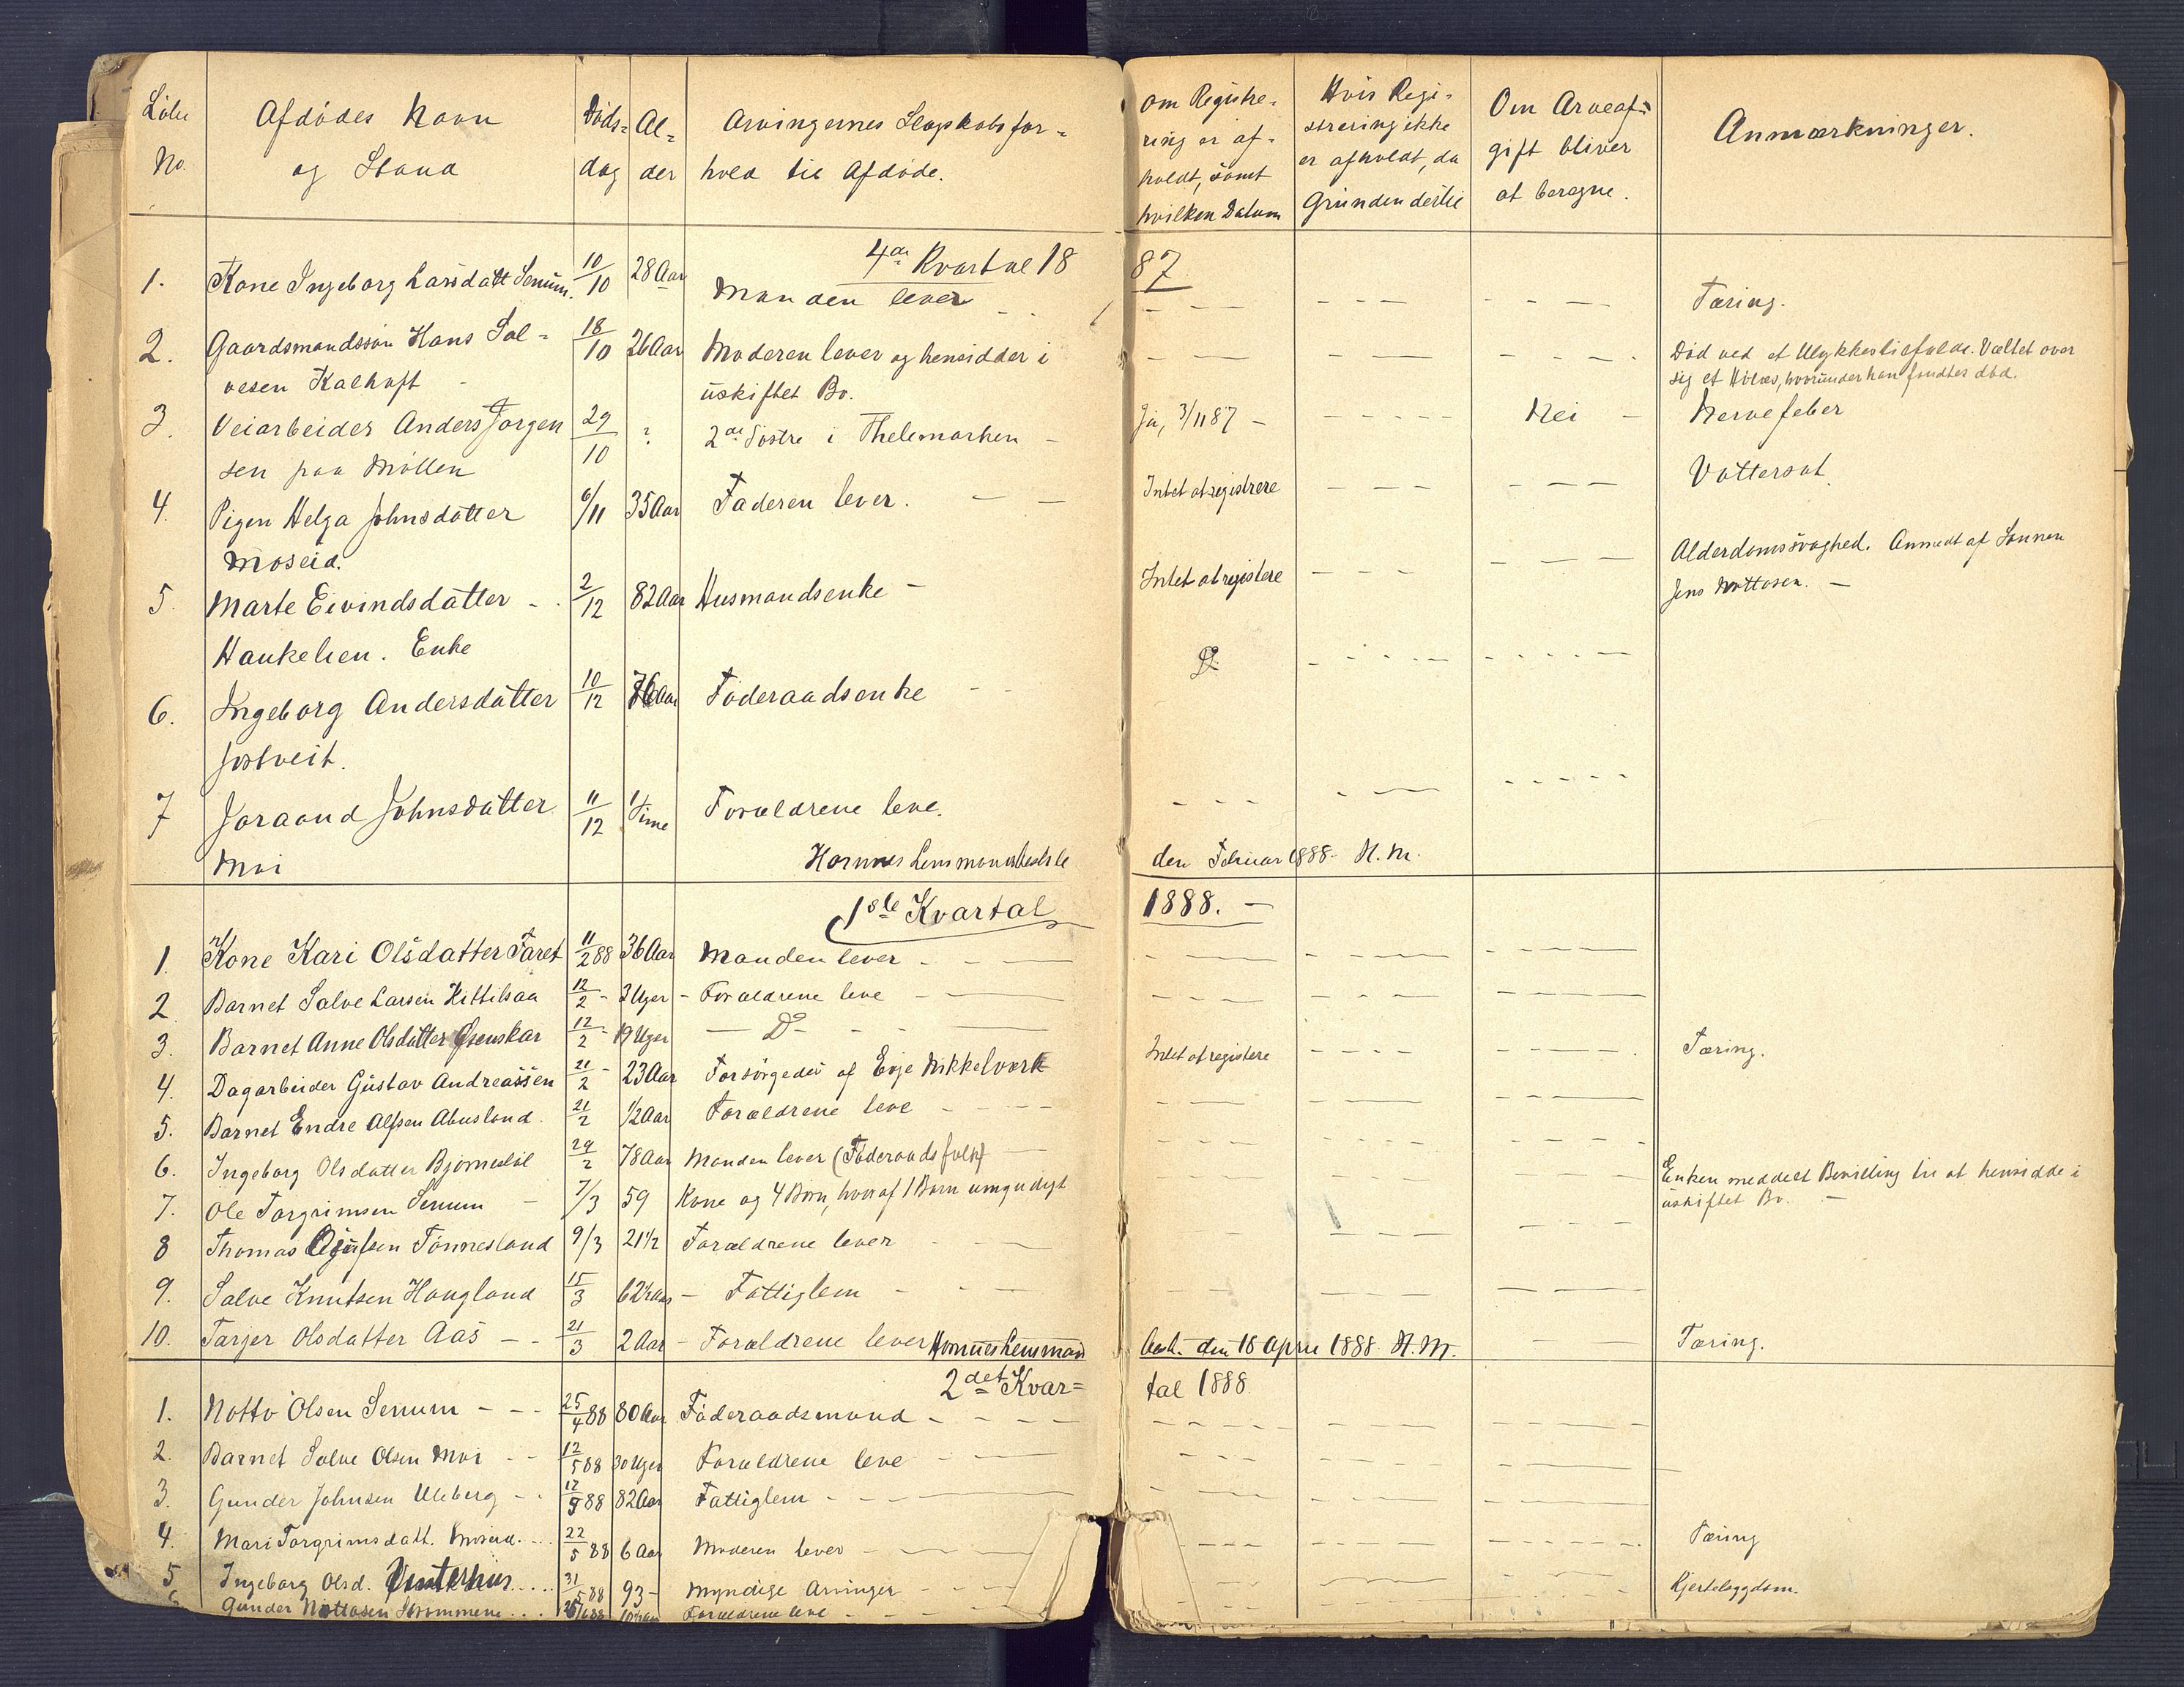 Löbe No. Afdödes Navn og Stand Döds= dag Al= der Arvingernes Slegskabsfor= hold til Afdöde. Om Registre= ring er af= holdt, samt hvilken Datum Hvis Regi= strering ikke er afholdt, da Grunden dertil Om Arveaf= gift bliver at beregne. Anmærkninger.
4de Kvartal 1887
1. Kone Ingeborg Larsdatt Senum. 10/10 28 Aar Manden lever - - - - - - - - - Tæring.
2. Gaardsmandssön Hans Sal= 18/10 26 Aar Moderen lever og hensidder i - - - - - - - - - Död ved et Ulykkestilfælde. Væltet over
vesen Kalhoft - uskiftet Bo. sig et Hölæs, hvorunder han fandtes död.
3. Veiarbeider Anders Jörgen 29/10 ? 2de Söstre i Thelemarken - Ja, 3/11 87 - - - - - Nei - Nervefeber
sen paa Möllen
4. Pigen Helga Johnsdatter 6/11 35 Aar Faderen lever. - - Intet at registrere - - - - - - Vattersot.
Moseid.
5. Marte Eivindsdatter - . 2/12 82 Aar Husmandsenke - Intet at registere - - - - - - Alderdomssvaghed. Anmeldt af Sönnen
Haukelien. Enke Jens Nottosen. -
6. Ingeborg Andersdatter 10/12 Aar Föderaadsenke - - Do - - - - - - - -
Jortveit.
7 Joraand Johnsdatter 11/12 1 Time Forældrene leve. - - - - - - - - - -
Moi Hornnes Lensmandsbestille den Februar 1888. H. M.
1ste Kvartal 1888. -
1. Kone Kari Olsdatter Faret 11/2 88 36 Aar Manden lever - - - - -
2. Barnet Salve Larsen Kittilsaa 12/2 - 3 Uger - Forældrene leve - -
3. Barnet Anne Olsdatter Øsenskar 12/2 - 19 Uger - Do - - - Tæring.
4. Dagarbeider Gustav Andreassen 21/2 - 23 Aar Forsörgedes af Evje Nikkelværk Intet at registere - - - -
5. Barnet Endre Alfsen Abusland. 21/2 1/2 Aar Forældrene leve - - - -
6. Ingeborg Olsdatter Björnestöl 29/2 78 Aar Manden lever (Föderaadsfolk) -
7. Ole Torgrimsen Senum - 7/3 59 Kone og 4 Börn, hvoraf 1 Barn umyndigt Enken meddelt Bevilling til at hensidde i
uskiftet Bo. -
8 Thomas Tönnesland 9/3 21 1/2 Forældrene lever - -
9. Salve Knutsen Haugland 15/3 62 1/2 Aar - Fattiglem - - -
10. Tarjer Olsdatter Aas - - 21/3 2 Aar - Forældrene lever Hornnes Lensmand best. den 18 April 1888. H. M. - Tæring.
2det Kvar= tal 1888.
1. Notto Olsen Senum - - - 25/4 88 80 Aar Föderaadsmand - - - -
2. Barnet Salve Olsen Moi - - 12/5 88 30 Uger Forældrene leve - -
3. Gunder Johnsen Uleberg - . 17/5 88 82 Aar Fattiglem - - -
4. Mari Torgrimsdatt. Moseid.... 22/5 88 6 Aar Moderen lever - - Tæring
5 Ingeborg Olsd. Uunterhus.... 31/5 88 93 - Myndige Arvinger - - Kjertelsygdom.
6 Gunder Nottosen Strömmene... Forældrene leve - -